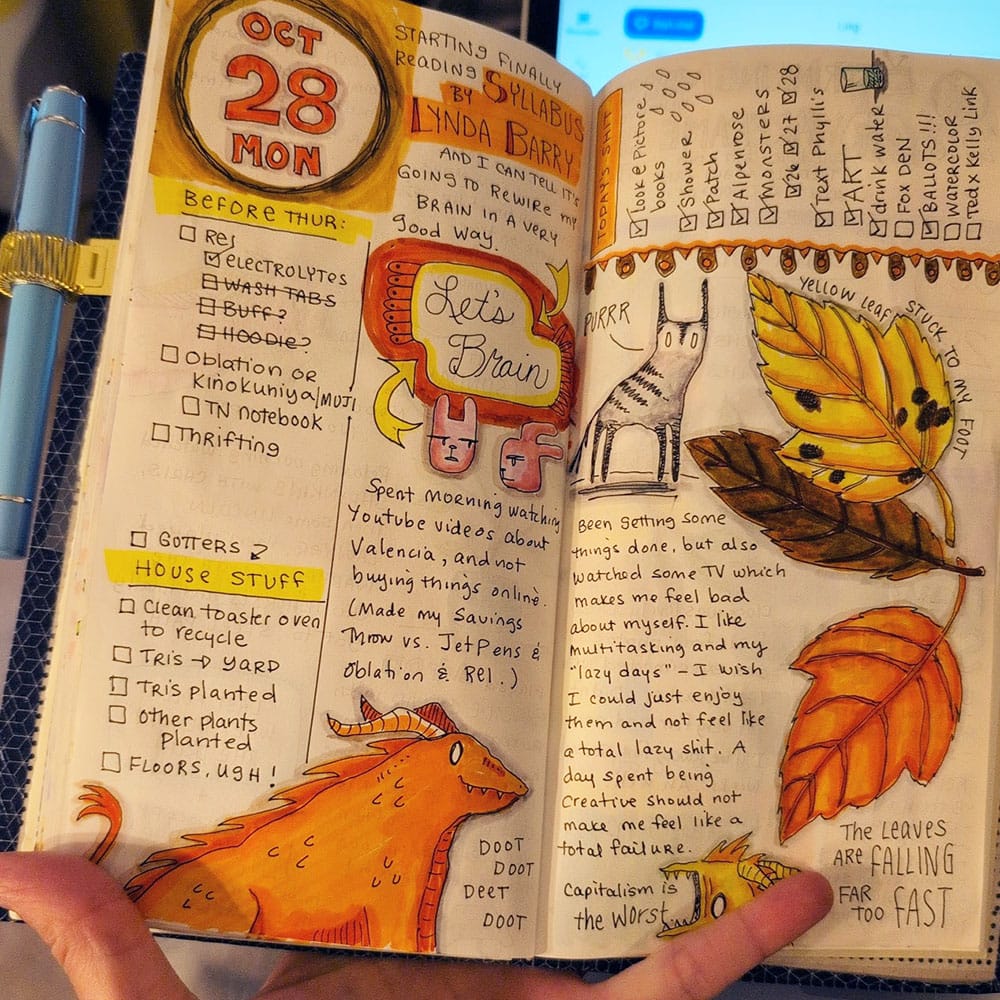 OCT
28
MON
STARTING FINALLY
READING SYLLABUS
BY
LYNDA BARRY
AND I CAN TELL IT'S
GOING TO REWIRE my
BRAIN IN A VERY
good way.
BEFORE THUR:
REI
ELECTROLYTES
WASH TABS
BUFF?
HOODIE?
Oblation OR
Kinokuniya/MUJI
TN notebook
Thrifting
GOTTERS
HOUSE STUFF
Clean toaster oven
to recycle
TRIS → YARD
TRIS planted
Other plants
Planted
FLOORS, UGH!
Let's
Brain
Spent morning watching
Youtube videos about
Valencia, and not
buying things online.
(Made my Savings
Throw vs. JetPens &
Oblation & REI.)
DOOT
DOOT
DEET
DOOT
TODAY'S SHIT
Look @ Picture
books
Shower
Patch
Alpenrose
Monsters
26 27 28
Text Phylli's
ART
drink water
FOX DEN
BALLOTS!!!
WATERCOLOR
Tedx Kelly Link
PURRR
YELLOW LEAF STUCK TO MY FOOT
Been getting some
things done, but also
watched some TV which
makes me feel bad
about myself. I like
multitasking and my
"lazy days" - I wish
I could just enjoy
them and not feel like
a total lazy shit. A
day spent being
Creative should not
make me feel like a
total failure.
Capitalism is
the worst
The LEAVES
ARE FALLING
FAR
TOO FAST